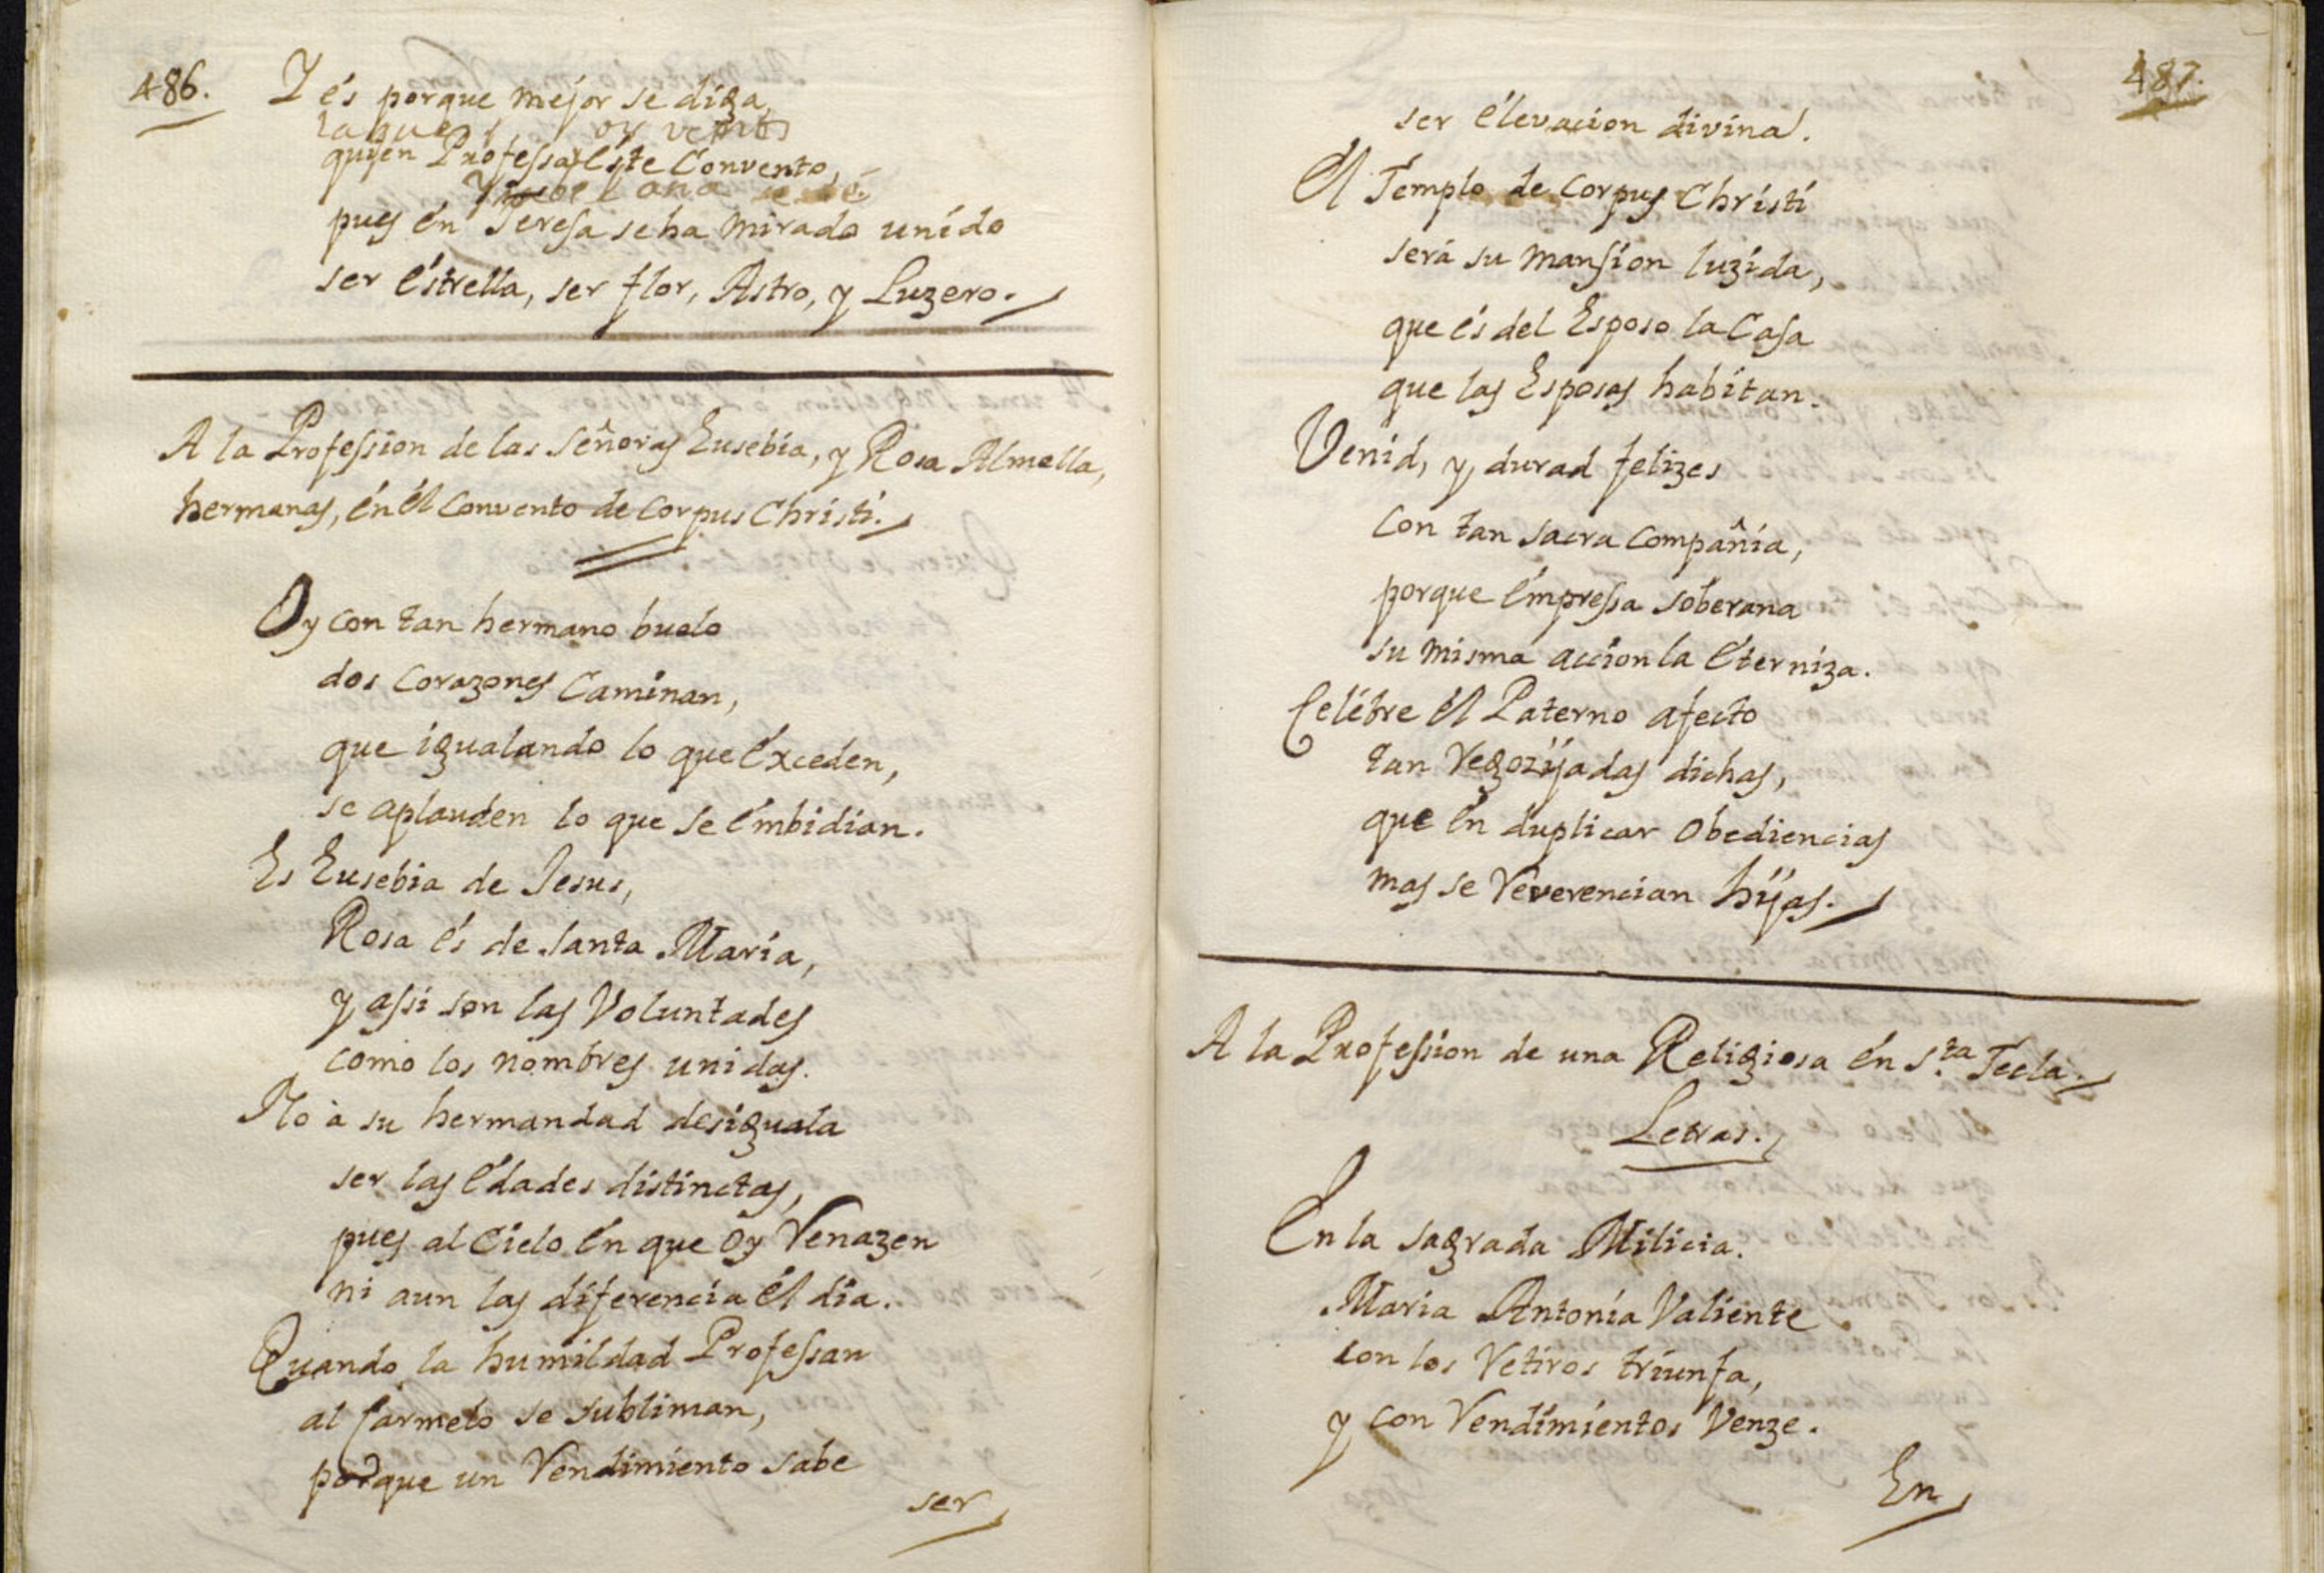 486.
Y és porque mejor se diga,
oy
quien Professa éste Convento,
pues én Teresa se ha mirado unído
ser éstrella, ser flor, Astro, y Luzero.
A la Profession de las Señoras Eusebia, y Rosa Almella,
hermanas, én él Convento de Corpus Christi.
Oy con tan hermano buelo
dos Corazones Caminan,
que igualando lo que éxceden,
se aplauden lo que se émbidian.
Es Eusebia de Jesus,
Rosa és de Santa Maria,
y assi son las Voluntades
como los nombres unidas.
No à su hermandad desiguala
ser las édades distinctas,
pues al Cielo én que oy Renazen
ni aun las diferencia él dia.
Quando la humildad Professan
al Carmelo se subliman,
porque un Rendimiento sabe
ser
487.
ser élevacion divina.
él Templo de Corpus Christi
será su mansion luzida,
que és del Esposo la Casa
que las Esposas habitan.
Venid, y durad felizes
con tan sacra Compañia,
porque émpressa soberana
su misma accion la éterniza.
Celébre él Paterno afecto
tan Regozijadas dichas,
que én duplicar obediencias
mas se Reverencian hijas.
A la Profession de una Religiosa én S.ta Tecla.
Letras.
En la sagrada Milicia.
Maria Antonia Valiente
con los Retiros triunfa,
y con Rendimientos Venze.
En